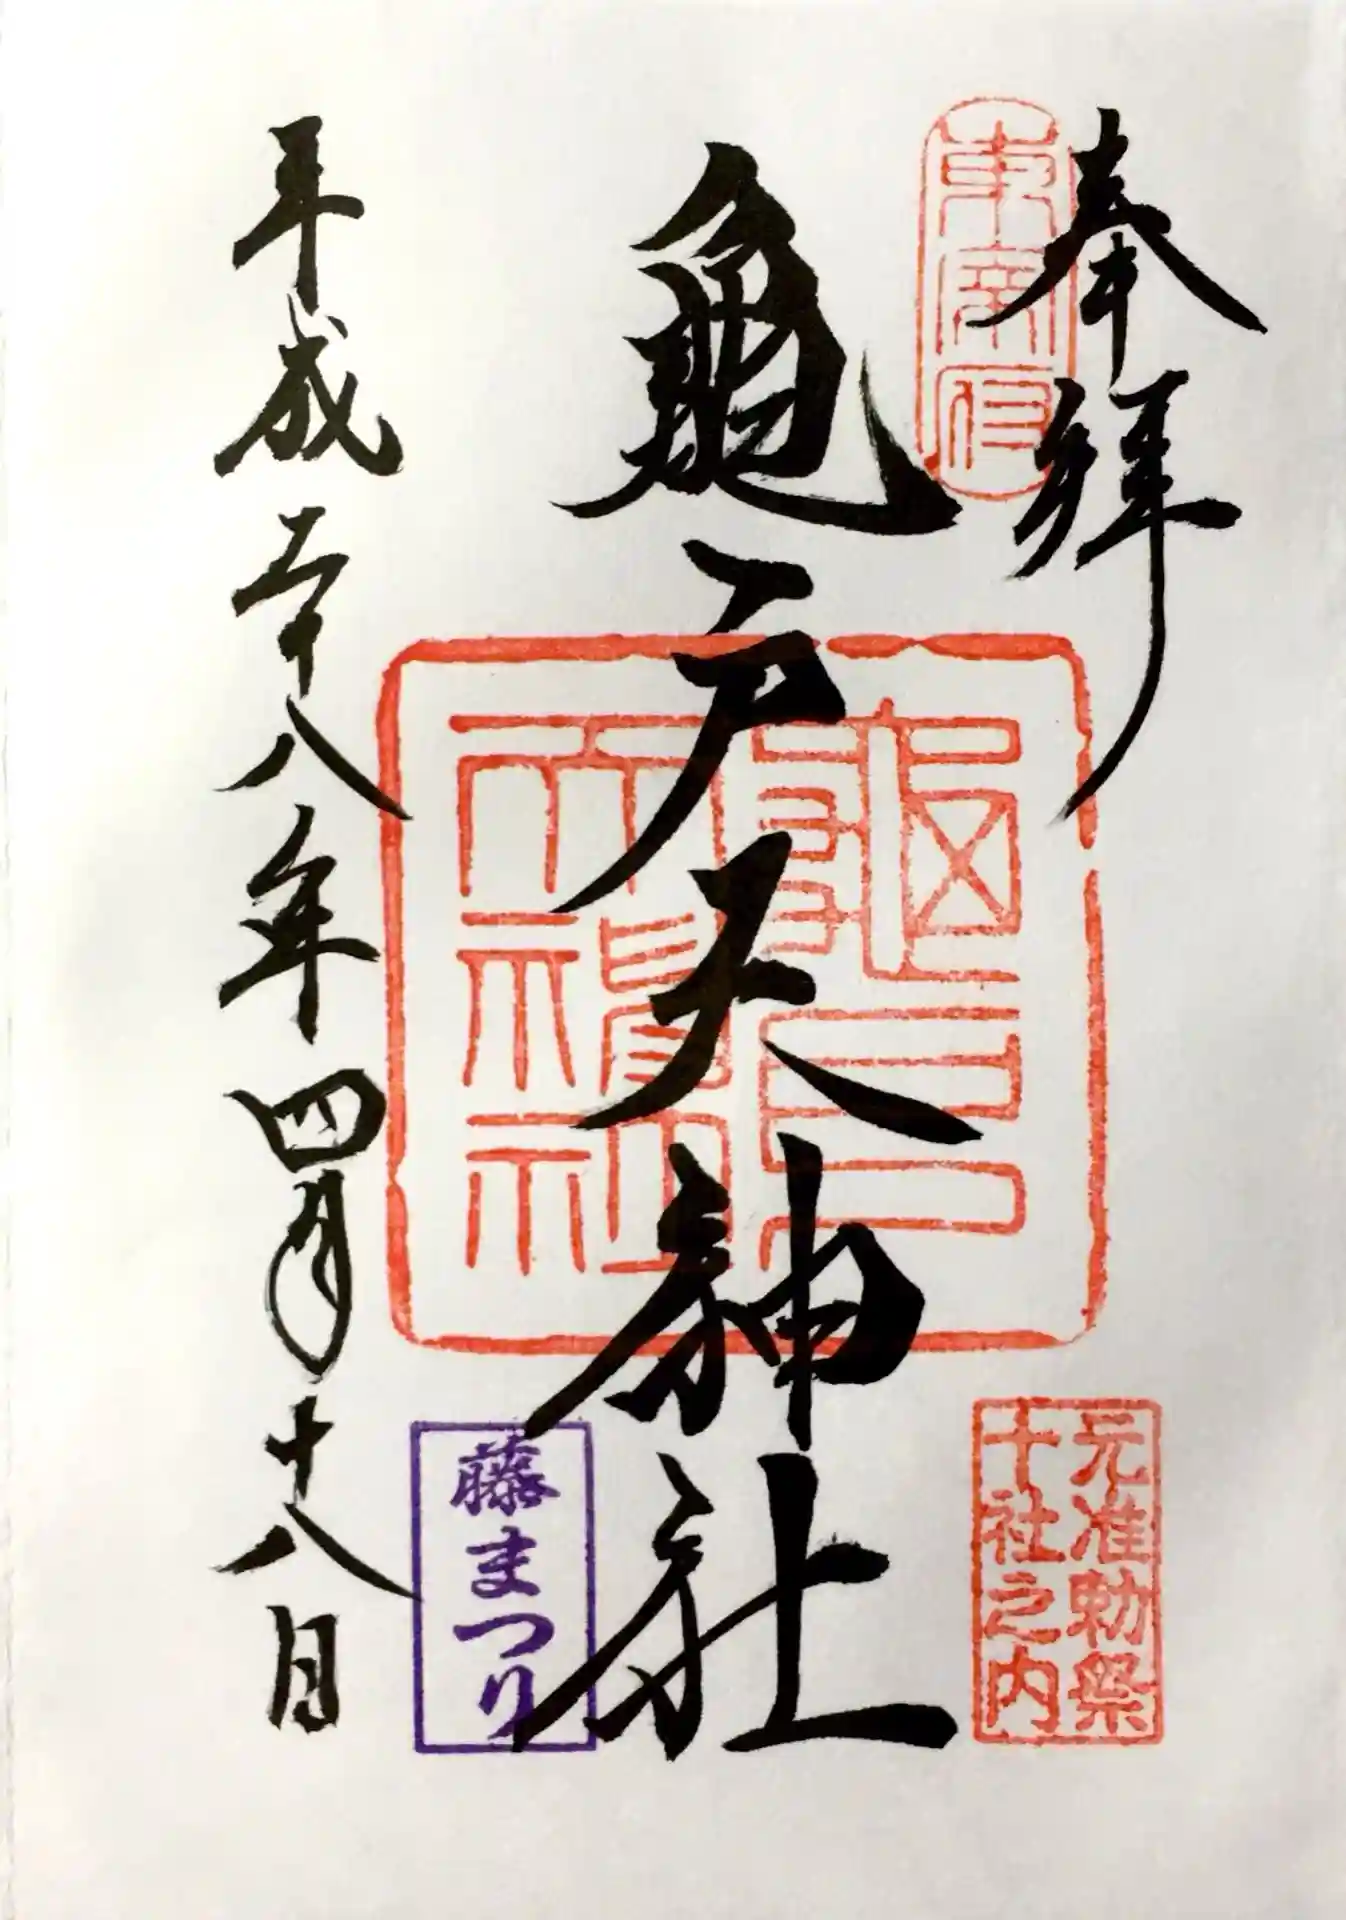 奉拝
東宰府
亀戸天神社
亀戸
天神社
元准勅祭
十社之内
藤まつり
平成二十八年四月十八日